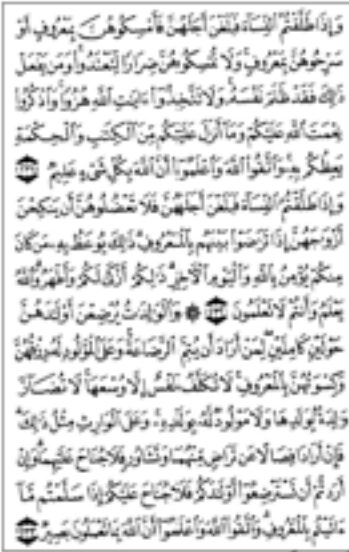 وَإِذَا طَلَّقْتُمُ ٱلنِّسَآءَ فَبَلَغْنَ أَجَلَهُنَّ فَأَمْسِكُوهُنَّ بِمَعْرُوفٍ أَوْ
سَرِّحُوهُنَّ بِمَعْرُوفٍ وَلَا تُمْسِكُوهُنَّ ضِرَارًا لِّتَعْتَدُوا۟ وَمَن يَفْعَلْ
ذَٰلِكَ فَقَدْ ظَلَمَ نَفْسَهُۥ وَلَا تَتَّخِذُوٓا۟ ءَايَٰتِ ٱللَّهِ هُزُوًا وَٱذْكُرُوا۟
نِعْمَتَ ٱللَّهِ عَلَيْكُمْ وَمَآ أَنزَلَ عَلَيْكُم مِّنَ ٱلْكِتَٰبِ وَٱلْحِكْمَةِ
يَعِظُكُم بِهِۦ وَٱتَّقُوا۟ ٱللَّهَ وَٱعْلَمُوٓا۟ أَنَّ ٱللَّهَ بِكُلِّ شَىْءٍ عَلِيمٌ ٢٣١
وَإِذَا طَلَّقْتُمُ ٱلنِّسَآءَ فَبَلَغْنَ أَجَلَهُنَّ فَلَا تَعْضُلُوهُنَّ أَن يَنكِحْنَ
أَزْوَٰجَهُنَّ إِذَا تَرَٰضَوْا۟ بَيْنَهُم بِٱلْمَعْرُوفِ ذَٰلِكَ يُوعَظُ بِهِۦ مَن كَانَ
مِنكُمْ يُؤْمِنُ بِٱللَّهِ وَٱلْيَوْمِ ٱلْءَاخِرِ ذَٰلِكُمْ أَزْكَىٰ لَكُمْ وَأَطْهَرُ وَٱللَّهُ
يَعْلَمُ وَأَنتُمْ لَا تَعْلَمُونَ ٢٣٢ ۞ وَٱلْوَٰلِدَٰتُ يُرْضِعْنَ أَوْلَٰدَهُنَّ
حَوْلَيْنِ كَامِلَيْنِ لِمَنْ أَرَادَ أَن يُتِمَّ ٱلرَّضَاعَةَ وَعَلَى ٱلْمَوْلُودِ لَهُۥ رِزْقُهُنَّ
وَكِسْوَتُهُنَّ بِٱلْمَعْرُوفِ لَا تُكَلَّفُ نَفْسٌ إِلَّا وُسْعَهَا لَا تُضَآرَّ
وَٰلِدَةٌۢ بِوَلَدِهَا وَلَا مَوْلُودٌ لَّهُۥ بِوَلَدِهِۦ وَعَلَى ٱلْوَارِثِ مِثْلُ ذَٰلِكَ
فَإِنْ أَرَادَا فِصَالًا عَن تَرَاضٍ مِّنْهُمَا وَتَشَاوُرٍ فَلَا جُنَاحَ عَلَيْهِمَا وَإِنْ
أَرَدتُّمْ أَن تَسْتَرْضِعُوٓا۟ أَوْلَٰدَكُمْ فَلَا جُنَاحَ عَلَيْكُمْ إِذَا سَلَّمْتُم مَّآ
ءَاتَيْتُم بِٱلْمَعْرُوفِ وَٱتَّقُوا۟ ٱللَّهَ وَٱعْلَمُوٓا۟ أَنَّ ٱللَّهَ بِمَا تَعْمَلُونَ بَصِيرٌ ٢٣٣